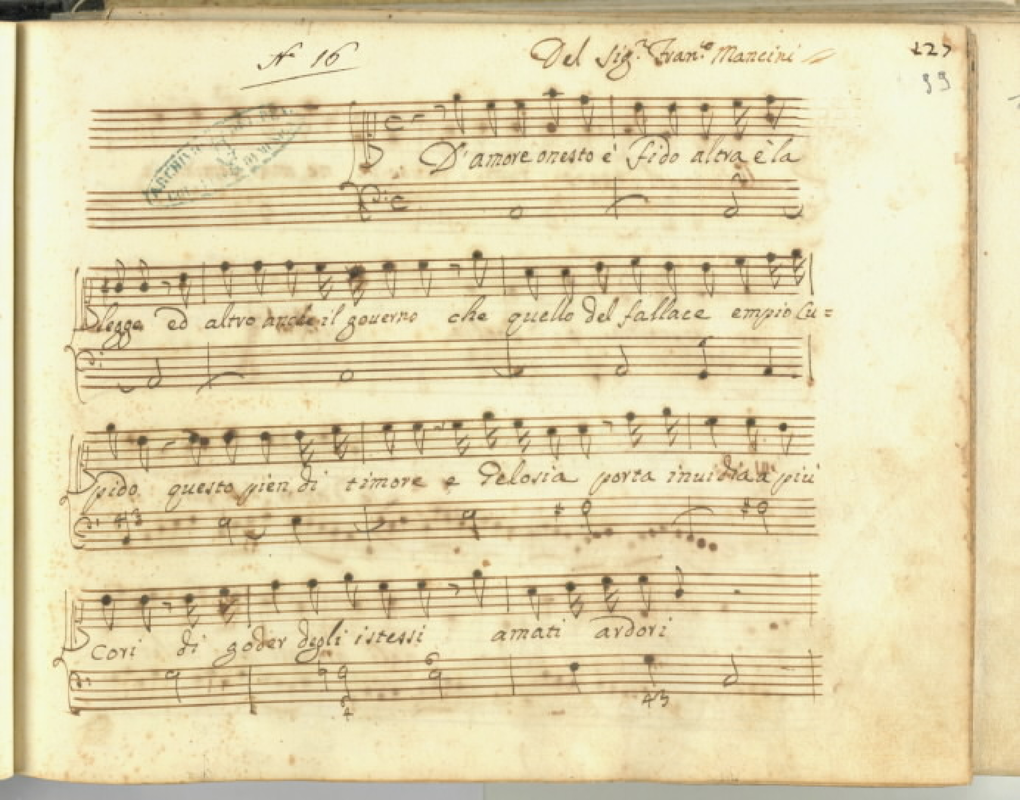 N° 16 Del Sig.r Fran.co Mancini
127
99
D'amore onesto è fido altra è la
legge ed altro anche il governo che quello del fallace empio Cu=
pido questo pien di timore e Gelosia porta inuidia a più
Cori di goder degli istessi amati ardori